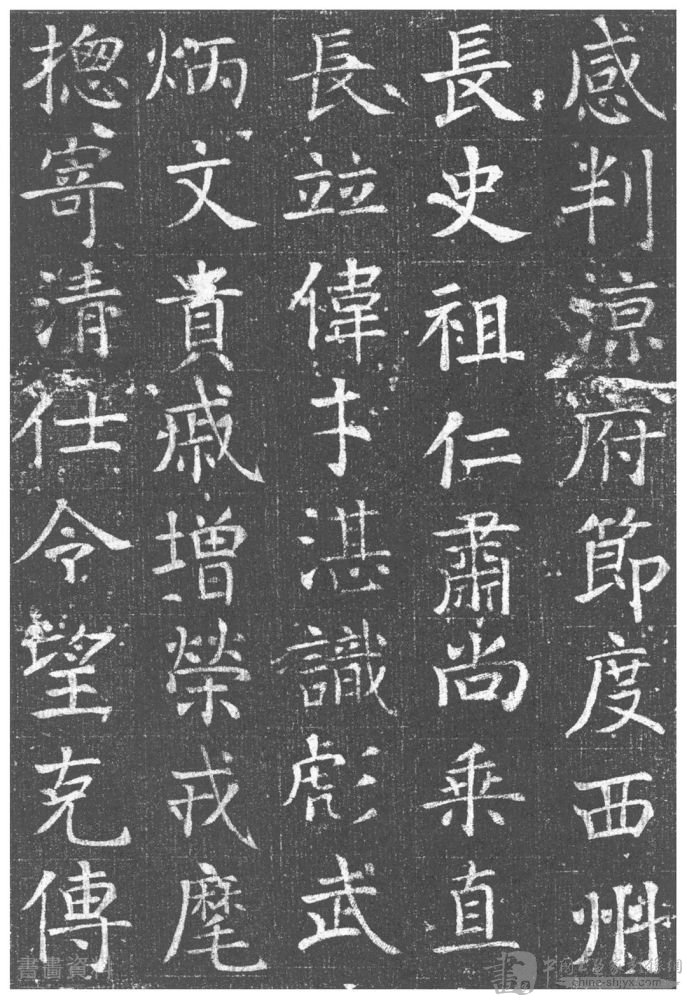 感判涼府節度西州
長史祖仁肅尚乘直
長並偉才湛識彪武
炳文貴戚增榮戎麾
揔寄清仕令望克傳
書畫資料
china-shjyx.com